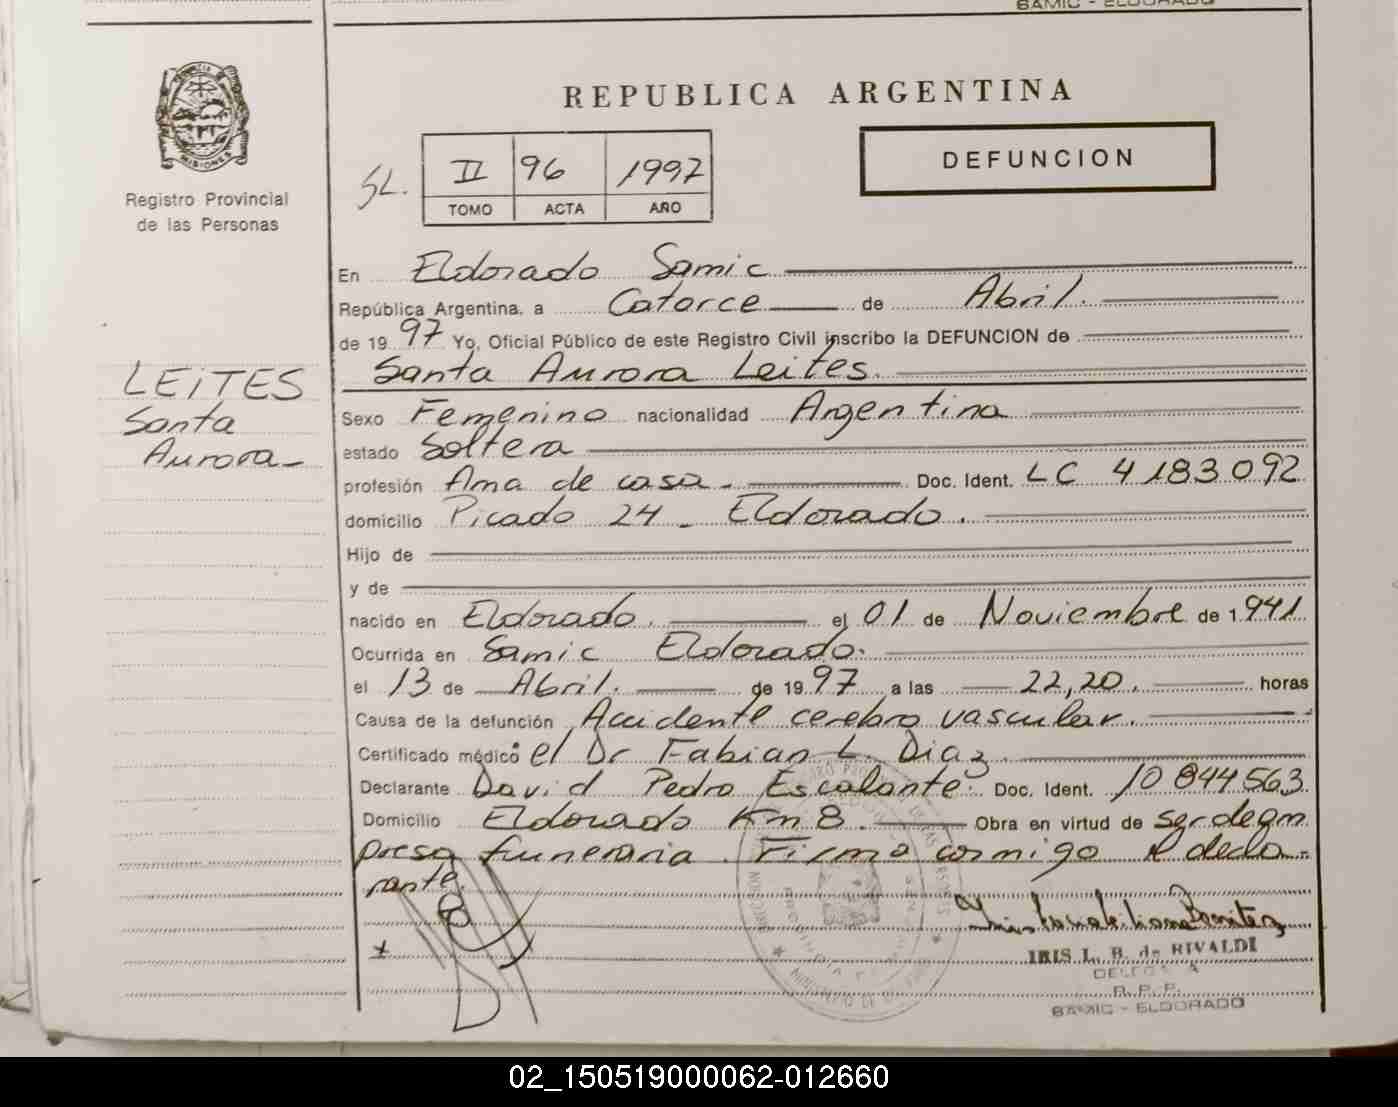 SAMIC - ELDORADO
PROVINCIA DE
MISIONES
Registro Provincial
de las Personas
REPUBLICA ARGENTINA
SL.
II 96 1997
TOMO ACTA AÑO
DEFUNCION
LEITES
Santa
Aurora
En Eldorado Samic
República Argentina, a Catorce de Abril.
de 1997 Yo, Oficial Público de este Registro Civil inscribo la DEFUNCION de
Santa Aurora Leites.
Sexo Femenino nacionalidad Argentina
estado Soltera
profesión Ama de casa. Doc. Ident. LC 4183.092
domicilio Picado 24 - Eldorado.
Hijo de
y de
nacido en Eldorado. el 01 de Noviembre de 1941
Ocurrida en Samic Eldorado.
el 13 de Abril. de 1997 a las 22,20. horas
Causa de la defunción Accidente cerebro vascular.
Certificado médico el Dr Fabian L. Diaz.
Declarante David Pedro Escalante. Doc. Ident. 10 844 563
Domicilio Eldorado Km 8. Obra en virtud de ser de em
presa funeraria. Firma conmigo el decla-
rante.
IRIS L. B. de RIVALDI
DELEGADA
R. P. P.
SAMIC - ELDORADO
02_150519000062-012660